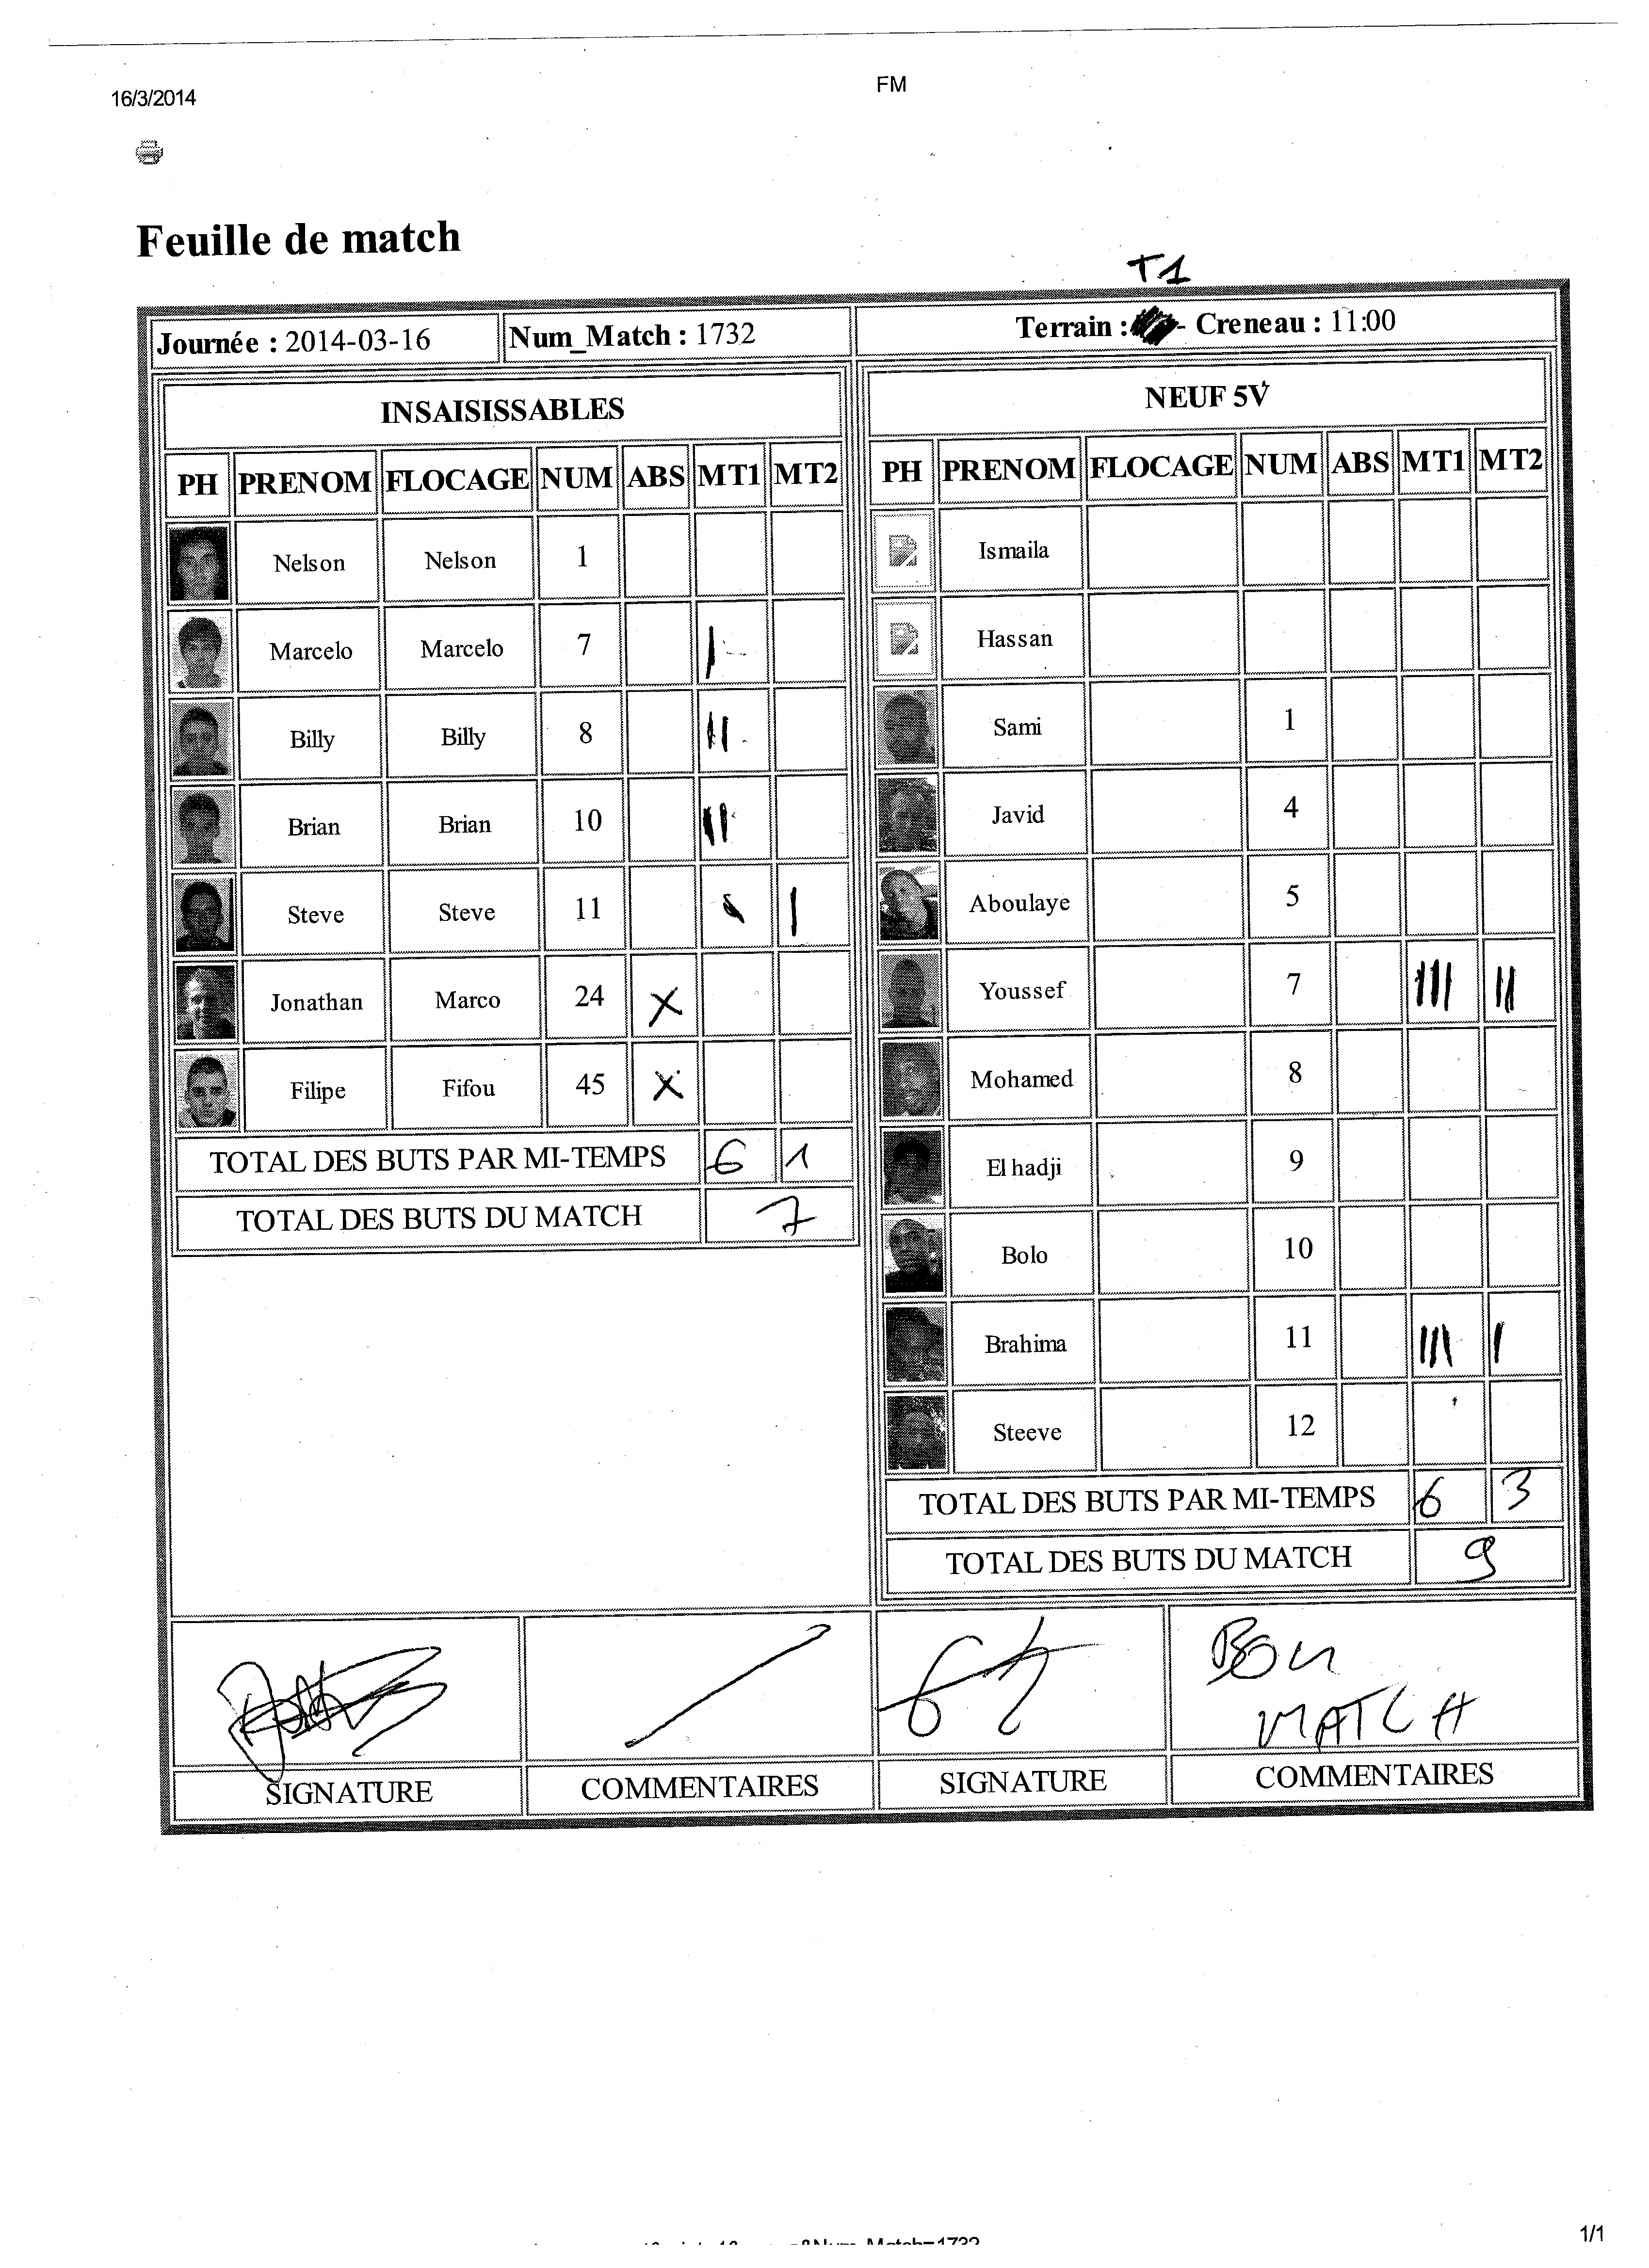 16/3/2014
FM
Feuille de match
T1
Journée : 2014-03-16 Num_Match : 1732 Terrain : - Creneau : 11:00
INSAISISSABLES
PH PRENOM FLOCAGE NUM ABS MT1 MT2
Nelson Nelson 1
Marcelo Marcelo 7 |
Billy Billy 8 ||
Brian Brian 10 ||
Steve Steve 11 |
Jonathan Marco 24 X
Filipe Fifou 45 X
TOTAL DES BUTS PAR MI-TEMPS 6 1
TOTAL DES BUTS DU MATCH 7
NEUF 5V
PH PRENOM FLOCAGE NUM ABS MT1 MT2
Ismaila
Hassan
Sami 1
Javid 4
Aboulaye 5
Youssef 7 ||| ||
Mohamed 8
El hadji 9
Bolo 10
Brahima 11 ||| |
Steeve 12
TOTAL DES BUTS PAR MI-TEMPS 6 3
TOTAL DES BUTS DU MATCH 9
BON
MATCH
SIGNATURE COMMENTAIRES SIGNATURE COMMENTAIRES
Num_Match=1732
1/1